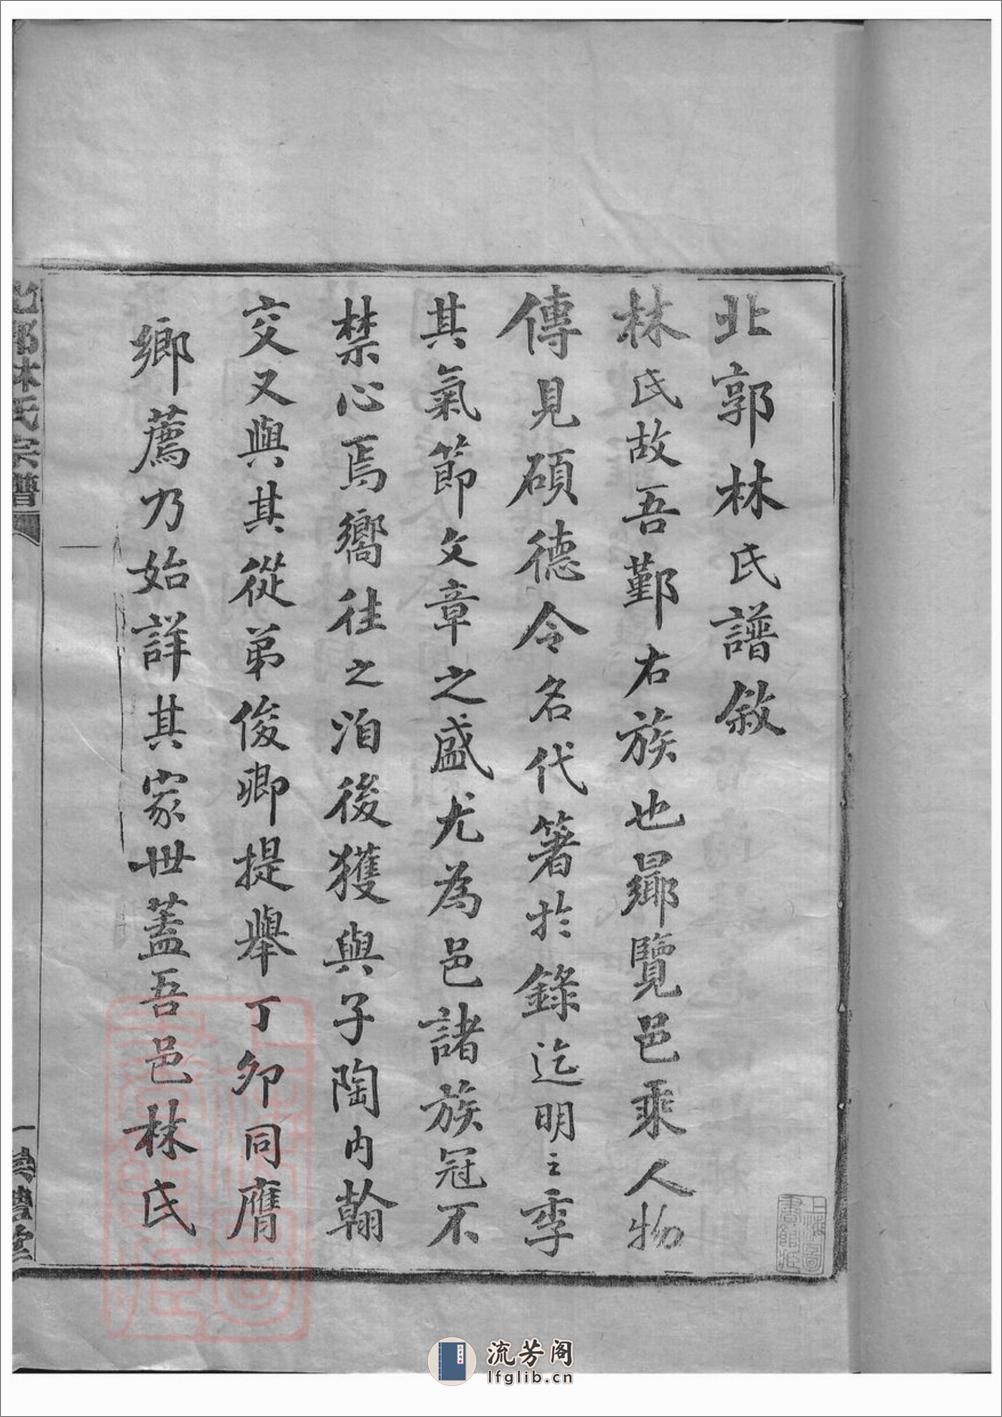 北郭林氏譜敘
林氏故吾鄞右族也曏覽邑乘人物
傳見碩德令名代箸於錄迄明之季
其氣節文章之盛尤為邑諸族冠不
禁心焉嚮往之洎後獲與子陶內翰
交又與其從弟俊卿提舉丁卯同膺
鄉薦乃始詳其家世蓋吾邑林氏
北郭林氏宗譜
一
上海圖書館藏
流芳阁
lfglib.cn